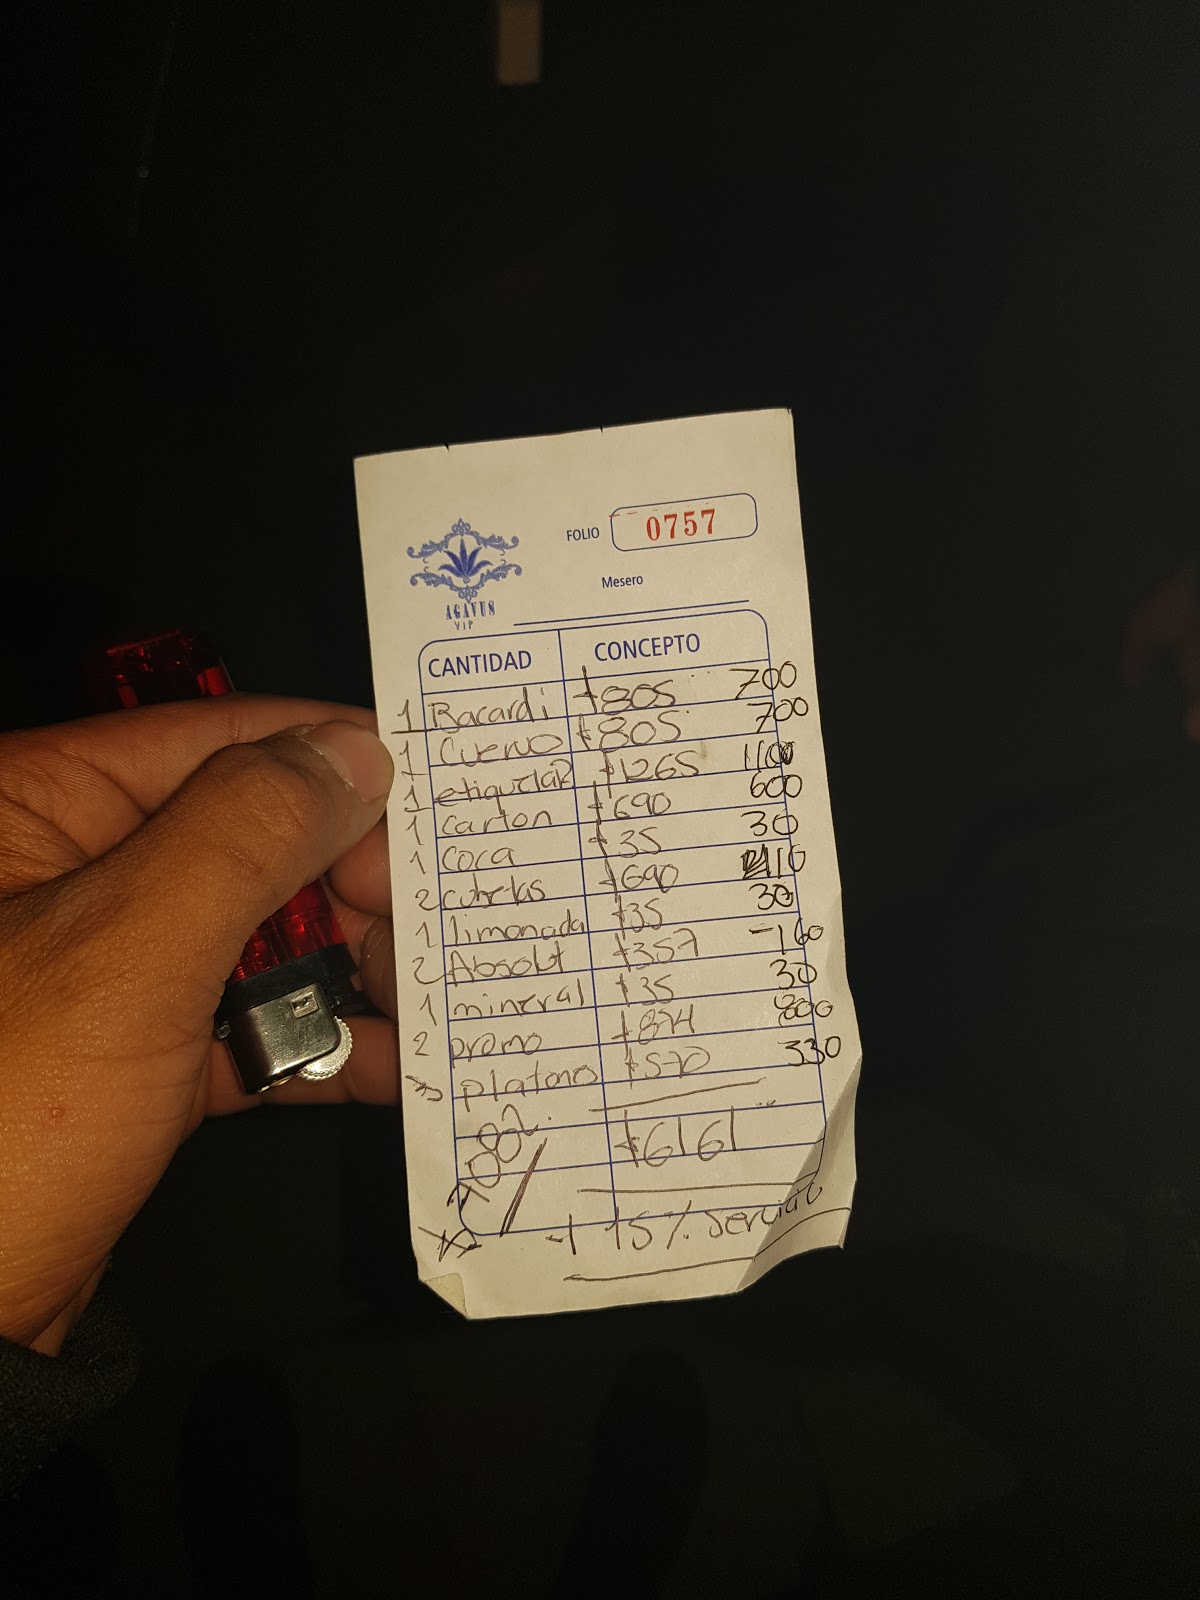 FOLIO 0757
Mesero
AGAVUS
VIP
CANTIDAD CONCEPTO
1 Bacardi $805 700
1 Cuervo $805 700
1 $1265 1100
1 Carton $690 600
1 Coca $35 30
2 cubetas $690 110
1 limonada $35 30
2 Absolut $357 -160
1 mineral $35 30
2 promo $874 800
3 platonos $570 330
$6161
7082.
+ 15% servicio